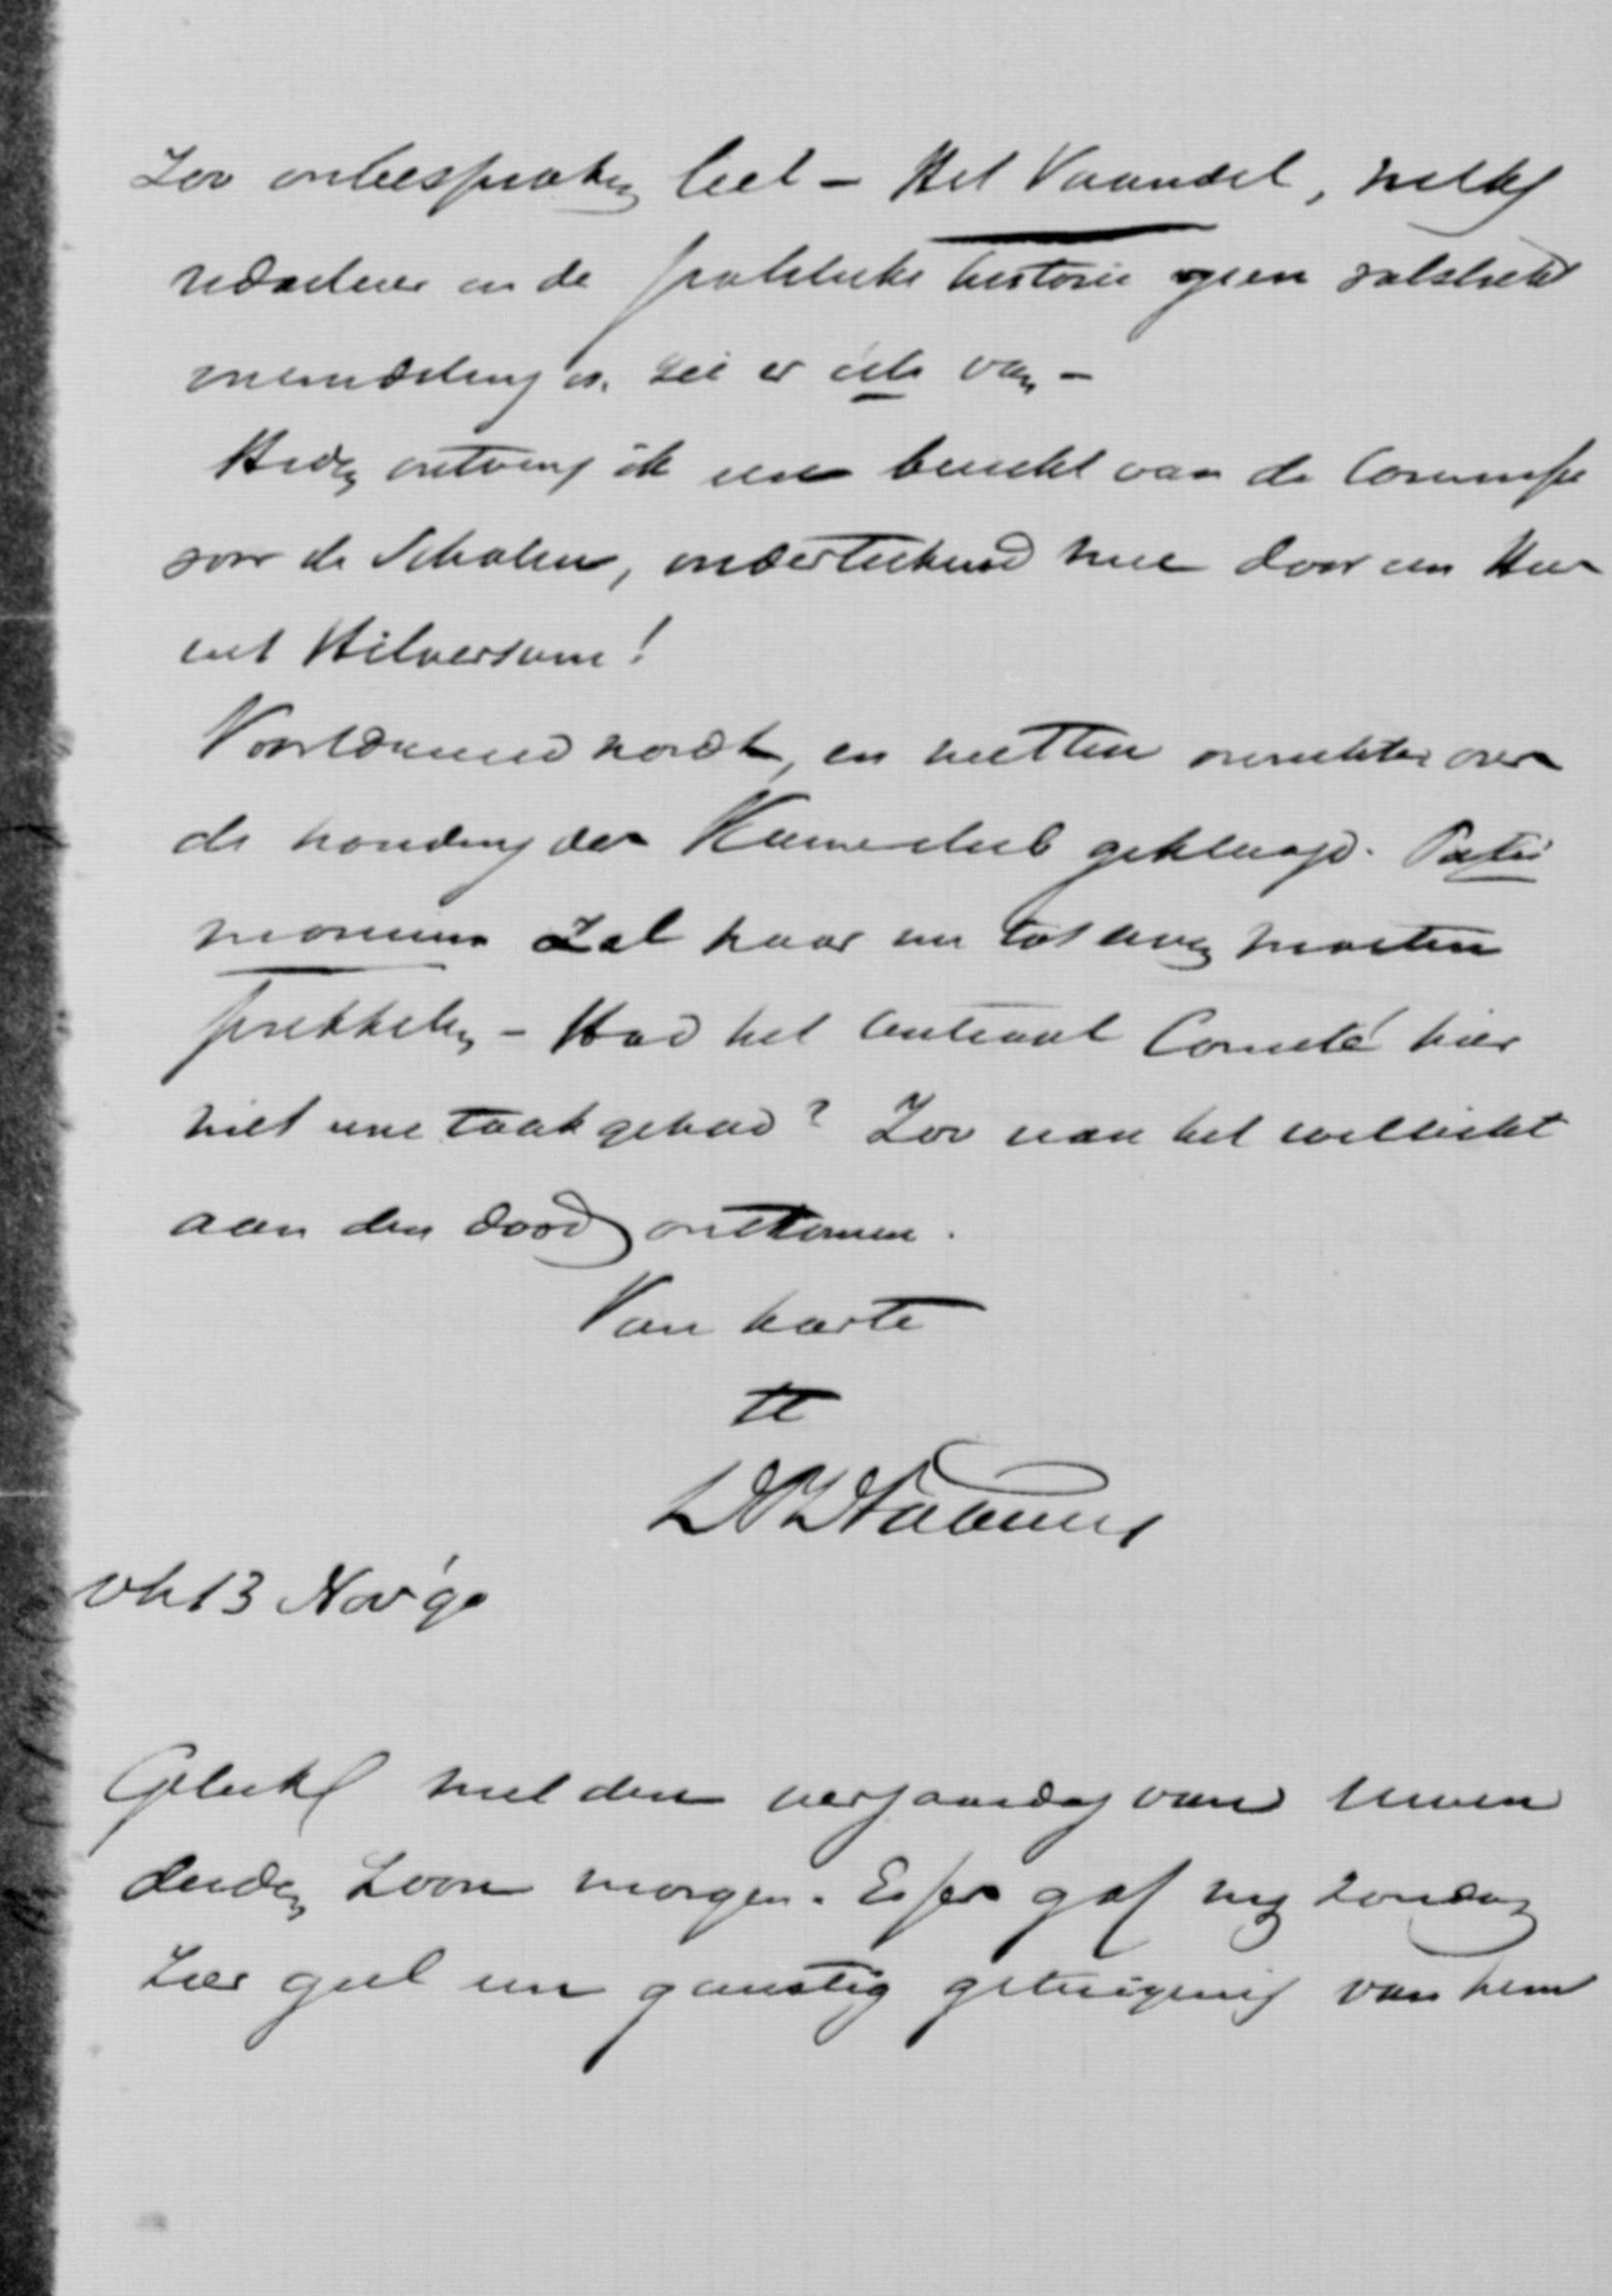 Zoo onbesproken liet – Het Vaandel, welks
redacteur in de politieke historie geen volstrekt
vreemdeling is. zei er iets van –
Heden ontving ik een bericht van de Commissie
voor de Scholen, onderteekend nu door een Heer
uit Hilversum!
Voortdurend wordt, en niet ten onrechte over
de houding der Kamerclub geklaagd. Patri
monium zal haar nu tot leven moeten
prikkelen – Had het Centraal Comité hier
niet eene taak gehad? Zoo ware het wellicht
aan den dood ontkomen.
Van harte
tt
vh 13 Nov '90
Geluk met den verjaardag van Uwen
derden zoon morgen. Esser gaf mij zondag
zeer goed een gunstig getuigenis van hem